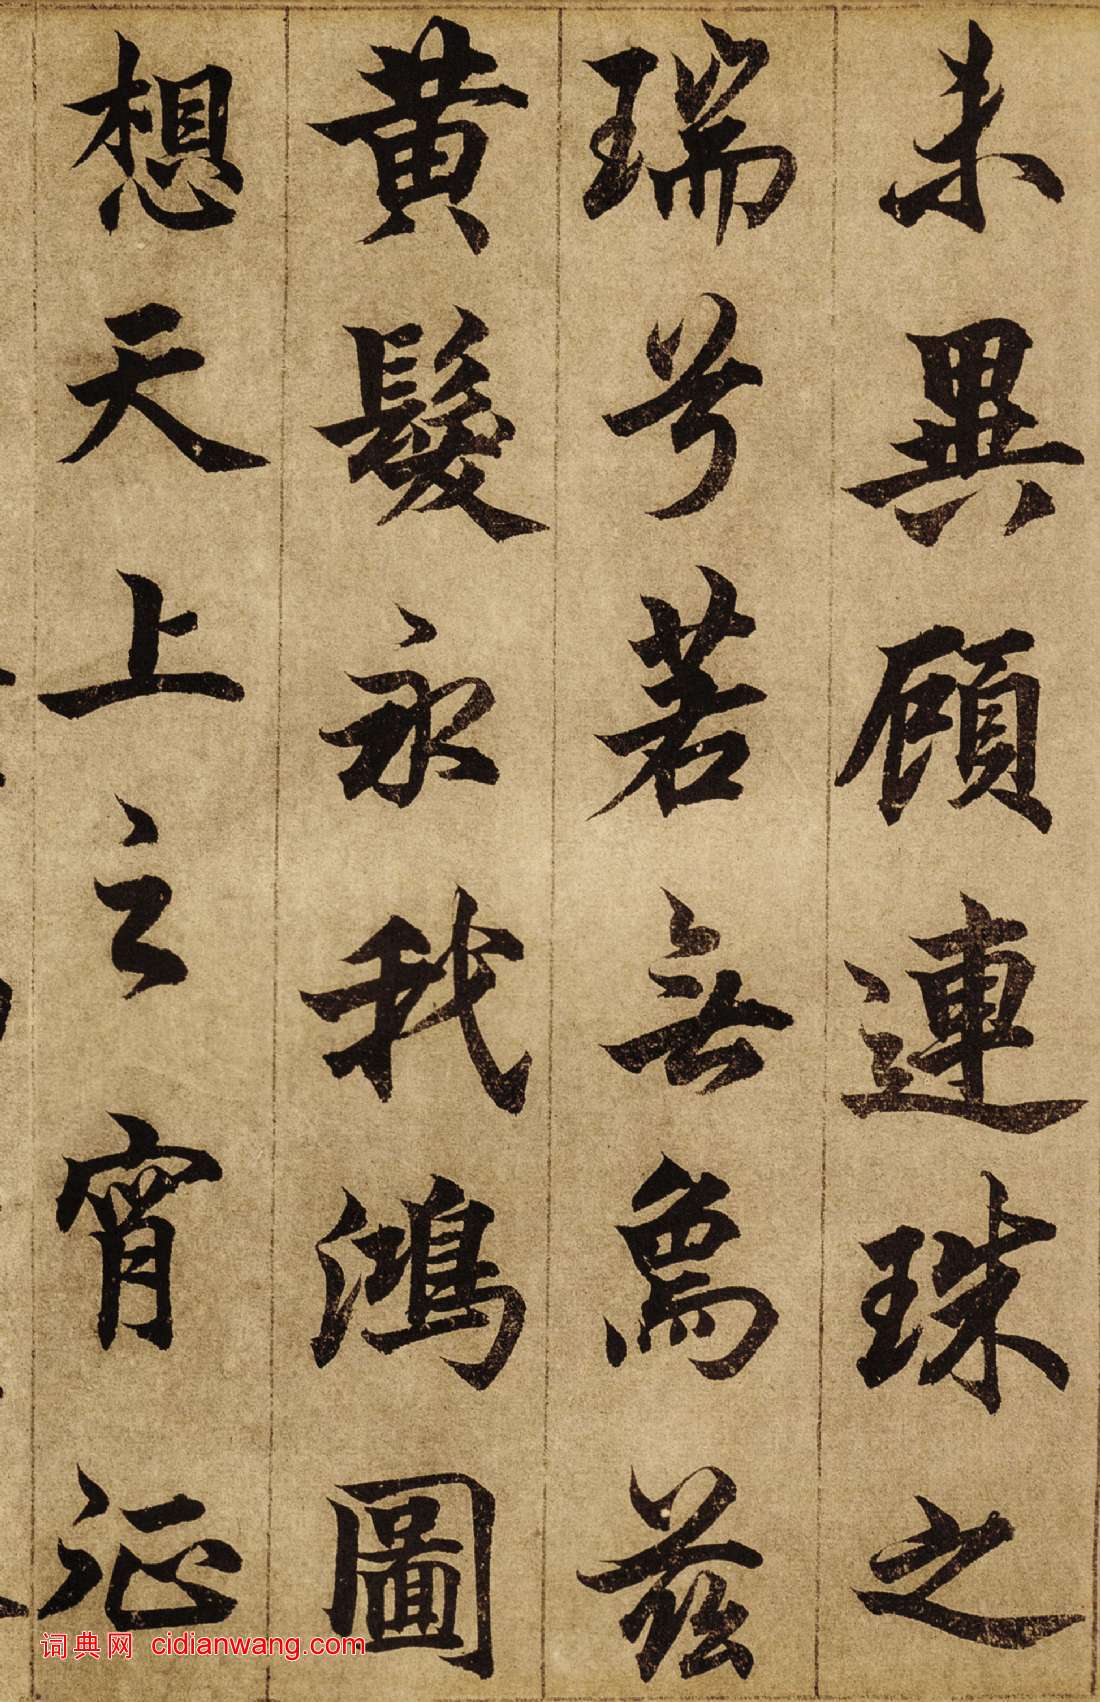 未異顧連珠之
瑞兮若無為茲
黃髮永我鴻圖
想天上之宵征
词典网 cidianwang.com